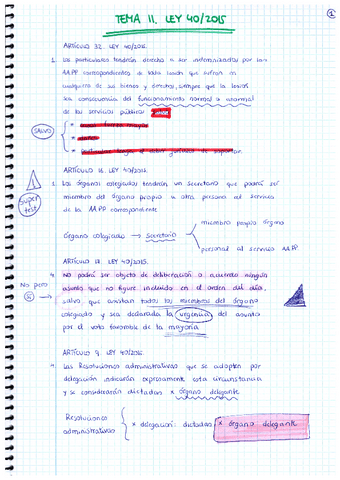 TEMA 11. LEY 40/2015
1
ARTÍCULO 32. LEY 40/2015.
1. Los particulares tendrán derecho a ser indemnizados por las
AAPP correspondientes de toda lesión que sufran en
cualquiera de sus bienes y derechos, siempre que la lesión
sea consecuencia del funcionamiento normal o anormal
de los servicios públicos
SALVO
ARTÍCULO 16. LEY 40/2015.
Super
test
1. Los órganos colegiados tendrán un Secretario que podrá ser
miembro del órgano propio u otra persona al servicio
de la AAPP correspondiente
órgano colegiado → Secretario
miembro propio órgano
personal al servicio AAPP
ARTÍCULO 17. LEY 40/2015.
No pero
SI
4. No podrá ser objeto de deliberación o acuerdo ningún
asunto que no figure incluido en el orden del día,
salvo, que asistan todos los miembros del órgano
colegiado y sea declarada la urgencia del asunto
por el voto favorable de la mayoría
ARTÍCULO 9. LEY 40/2015.
4. Las Resoluciones administrativas que se adopten por
delegación indicarán expresamente esta circunstancia
y se considerarán dictadas x órgano delegante
Resoluciones
administrativas
x delegación: dictadas x órgano delegante